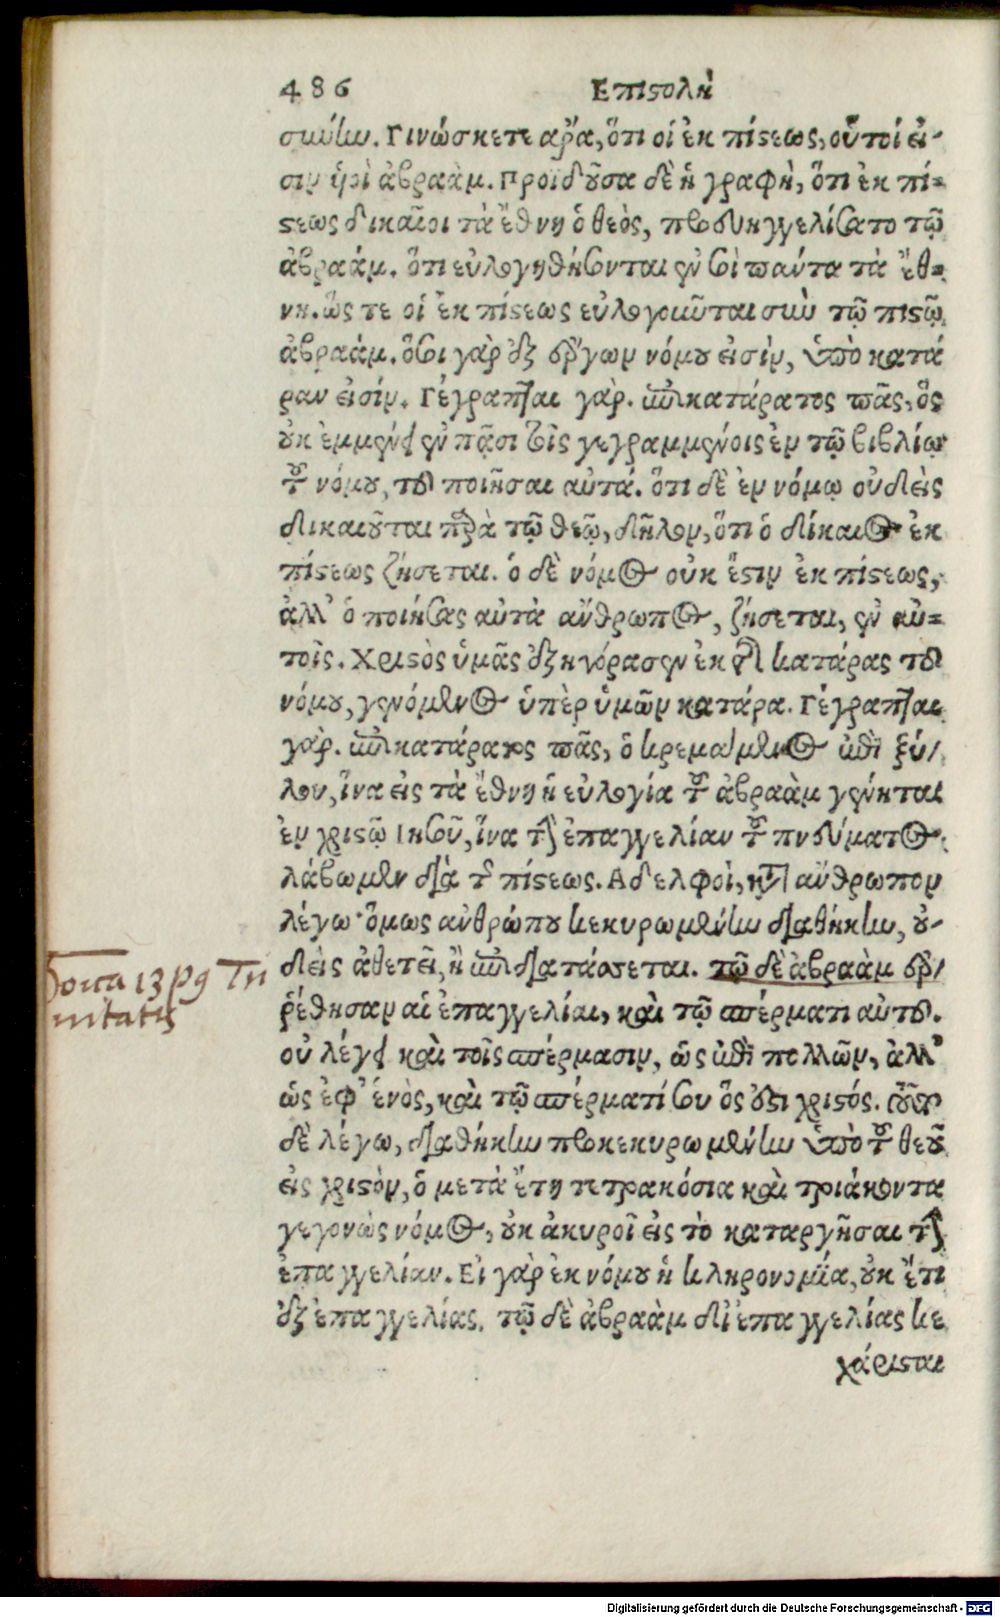 486 Επιςολὴ
σωύίω. Γινώσκετε αρα, ὅτι οἱ ἐκ πίςεως, οὗτοί εἰ-
σιν ὑιοὶ ἀβραὰμ. Προϊδοῦσα δὲ ἡ γραφὴ, ὅτι ἐκ πί-
ςεως δικαιοῖ τὰ ἔθνη ὁ θεὸς, προευηγγελίσατο τῷ
ἀβραάμ. ὅτι ευλογηθήσονται ἐν σοὶ πάντα τὰ ἔθ-
νη. ὥς τε οἱ ἐκ πίςεως ευλογοῦνται σὺν τῷ πιςῷ
ἀβραάμ. ὅσοι γὰρ ἐξ ἔργων νόμου εἰσὶν, ὑπὸ κατά
ραν εἰσίν. Γέγραπται γὰρ. ἐπικατάρατος πᾶς, ὃς
οὐκ ἐμμένει ἐν πᾶσι τοῖς γεγραμμένοις ἐν τῷ βιβλίῳ
τοῦ νόμου, τοῦ ποιῆσαι αὐτά. ὅτι δὲ ἐν νόμῳ οὐδεὶς
δικαιοῦται παρὰ τῷ θεῷ, δῆλον, ὅτι ὁ δίκαιος ἐκ
πίςεως ζήσεται. ὁ δὲ νόμος οὐκ ἔςιν ἐκ πίςεως,
ἀλλ' ὁ ποιήσας αὐτὰ ἄνθρωπος, ζήσεται, ἐν αὐ-
τοῖς. Χριςὸς ὑμᾶς ἐξηγόρασεν ἐκ τῆς κατάρας τοῦ
νόμου, γενόμενος ὑπὲρ ὑμῶν κατάρα. Γέγραπται
γὰρ. ἐπικατάρατος πᾶς, ὁ κρεμάμενος ἐπὶ ξύ/
λου, ἵνα εἰς τὰ ἔθνη ἡ ευλογία τοῦ ἀβραὰμ γένηται
ἐν χριςῷ Ἰησοῦ, ἵνα τὴν ἐπαγγελίαν τοῦ πνεύματος
λάβωμεν διὰ τῆς πίςεως. Αδελφοὶ, κατὰ ἄνθρωπον
λέγω· ὅμως ανθρώπου κεκυρωμένην διαθήκην, οὐ-
δεὶς ἀθετεῖ, ἢ ἐπιδιατάσσεται. τῷ δὲ ἀβραὰμ ἐρ/
ῥέθησαν αἱ ἐπαγγελίαι, καὶ τῷ σπέρματι αὐτοῦ.
οὐ λέγει καὶ τοῖς σπέρμασιν, ὡς ἐπὶ πολλῶν, ἀλλ'
ὡς ἐφ' ἑνὸς, καὶ τῷ σπέρματί σου ὅς ἐςι χριςός. τοῦτο
δὲ λέγω, διαθήκην προκεκυρωμένην ὑπὸ τοῦ θεοῦ
εἰς χριςὸν, ὁ μετὰ ἔτη τετρακόσια καὶ τριάκοντα
γεγονὼς νόμος, οὐκ ἀκυροῖ εἰς τὸ καταργῆσαι τὴν
ἐπαγγελίαν. Εἰ γὰρ ἐκ νόμου ἡ κληρονομία, οὐκ ἔτι
ἐξ ἐπαγγελίας. τῷ δὲ ἀβραὰμ δι' ἐπαγγελίας κε
χάριςαι
13 Tri
nitatis
Digitalisierung gefördert durch die Deutsche Forschungsgemeinschaft - DFG